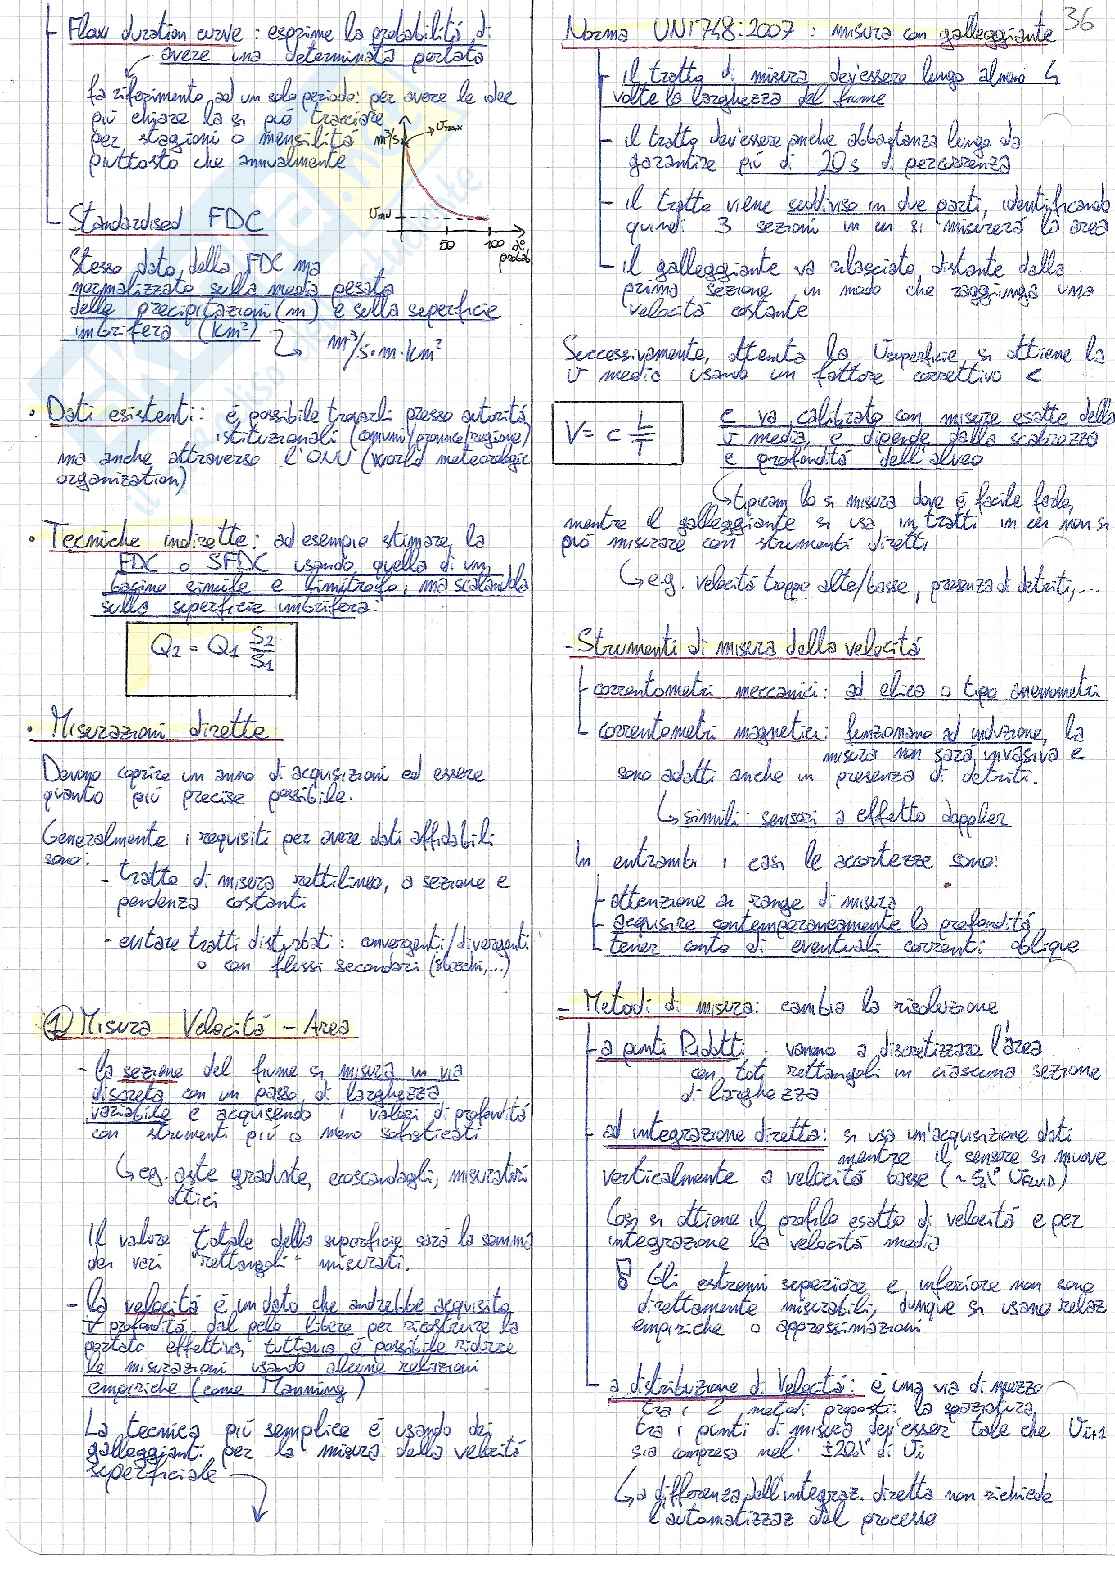 36
Flow duration curve : esprime la probabilità di
avere una determinata portata
fa riferimento ad un solo periodo: per avere le idee
più chiare la si può tracciare
per stagioni o mensilità
piuttosto che annualmente
m³/s
50
100
Standardised FDC
Stesso dato della FDC ma
normalizzato sulla media pesata
delle precipitazioni (m) e sulla superficie
imbrifera (km²)
m³/s·m·km²
• Dati esistenti : è possibile trovarli presso autorità
istituzionali (comuni/province/regione)
ma anche attraverso l'ONU (World meteorologic
organization)
• Tecniche indirette : ad esempio stimare la
FDC o SFDC usando quella di un
bacino simile e limitrofo, ma scalandola
sulla superficie imbrifera:
Q2 = Q1 S2/S1
• Misurazioni dirette
Devono coprire un anno di acquisizioni ed essere
quanto più precise possibile.
Generalmente i requisiti per avere dati affidabili
sono:
- tratto di misura rettilineo, a sezione e
pendenza costanti
- evitare tratti disturbati : convergenti/divergenti
o con flussi secondari
① Misura Velocità - Area
- la sezione del fiume si misura in via
discreta con un passo di larghezza
variabile e acquisendo i valori di profondità
con strumenti più o meno sofisticati
↳ eg. aste graduate, ecoscandagli, misuratori
ottici
Il valore totale della superficie sarà la somma
dei vari "rettangoli" misurati.
- la velocità è un dato che andrebbe acquisito
∀ profondità dal pelo libero per ricostruire la
portata effettiva, tuttavia è possibile ridurre
le misurazioni usando alcune relazioni
empiriche (come Manning)
La tecnica più semplice è usando dei
galleggianti per la misura della velocità
superficiale
Norma UNI 748:2007 : misura con galleggiante
- il tratto di misura dev'essere lungo almeno 4
volte la larghezza del fiume
- il tratto dev'essere anche abbastanza lungo da
garantire più di 20s di percorrenza
- il tratto viene suddiviso in due parti, identificando
quindi 3 sezioni in cui si misurerà la area
- il galleggiante va rilasciato distante dalla
prima sezione in modo che raggiunga una
velocità costante
Successivamente, ottenuta la v superficie, si ottiene la
v media usando un fattore correttivo c
V = c L/T
c va calibrato con misure esatte della
v media, e dipende dalla scabrezza
e profondità dell'alveo
↳ tipicam. lo si misura dove è facile farlo,
mentre il galleggiante si usa in tratti in cui non si
può misurare con strumenti diretti
↳ e.g. velocità troppo alte/basse, presenza di detriti,...
- Strumenti di misura della velocità
- correntometri meccanici : ad elica o tipo anemometri
- correntometri magnetici : funzionano ad induzione, la
misura non sarà invasiva e
sono adatti anche in presenza di detriti.
↳ simili: sensori a effetto doppler
In entrambi i casi le accortezze sono:
- attenzione ai range di misura
- acquisire contemporaneamente la profondità
- tener conto di eventuali correnti oblique
- Metodi di misura : cambia la risoluzione
- a punti Ridotti : vanno a discretizzare l'area
con tot rettangoli in ciascuna sezione
di larghezza
- ad integrazione diretta : si usa un'acquisizione dati
mentre il sensore si muove
verticalmente a velocità basse
Così si ottiene il profilo esatto di velocità e per
integrazione la velocità media
! Gli estremi superiore e inferiore non sono
direttamente misurabili, dunque si usano relaz.
empiriche o approssimazioni
- a distribuzione di Velocità : è una via di mezzo
tra i 2 metodi proposti: la spaziatura
tra i punti di misura dev'esser tale che Vi+1
sia compresa nel ±20% di Vi
↳ a differenza dell'integraz. diretta non richiede
l'automatizzaz. del processo